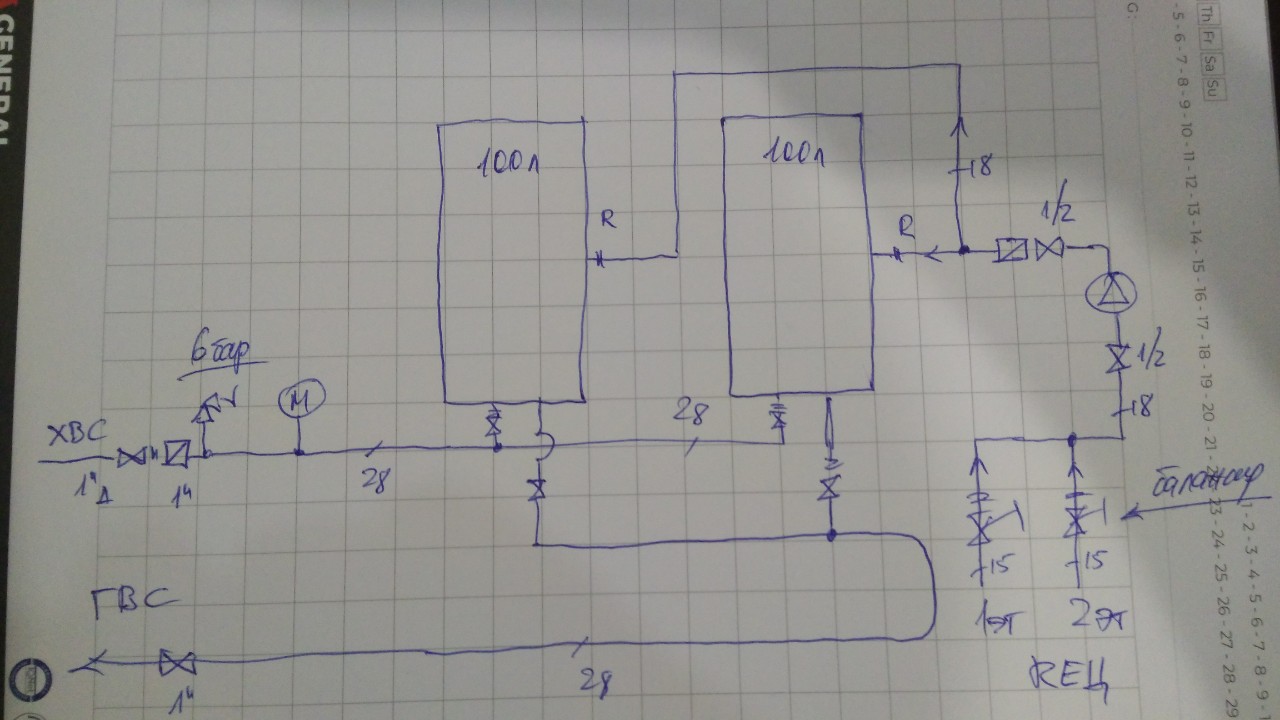 GENERAL
Th Fr Sa Su
G:
- 5 - 6 - 7 - 8 - 9 - 10 - 11 - 12 - 13 - 14 - 15 - 16 - 17 - 18 - 19 - 20 - 21 - 22 - 23 - 24 - 25 - 26 - 27 - 28 - 29
1 - 2 - 3 - 4 - 5 - 6 - 7 - 8 - 9 - 1
100л
100л
R
R
18
1/2
1/2
18
6 бар
М
ХВС
1" Д
1"
28
28
балансир
15
15
1эт
2эт
РЕЦ
ГВС
1"
28